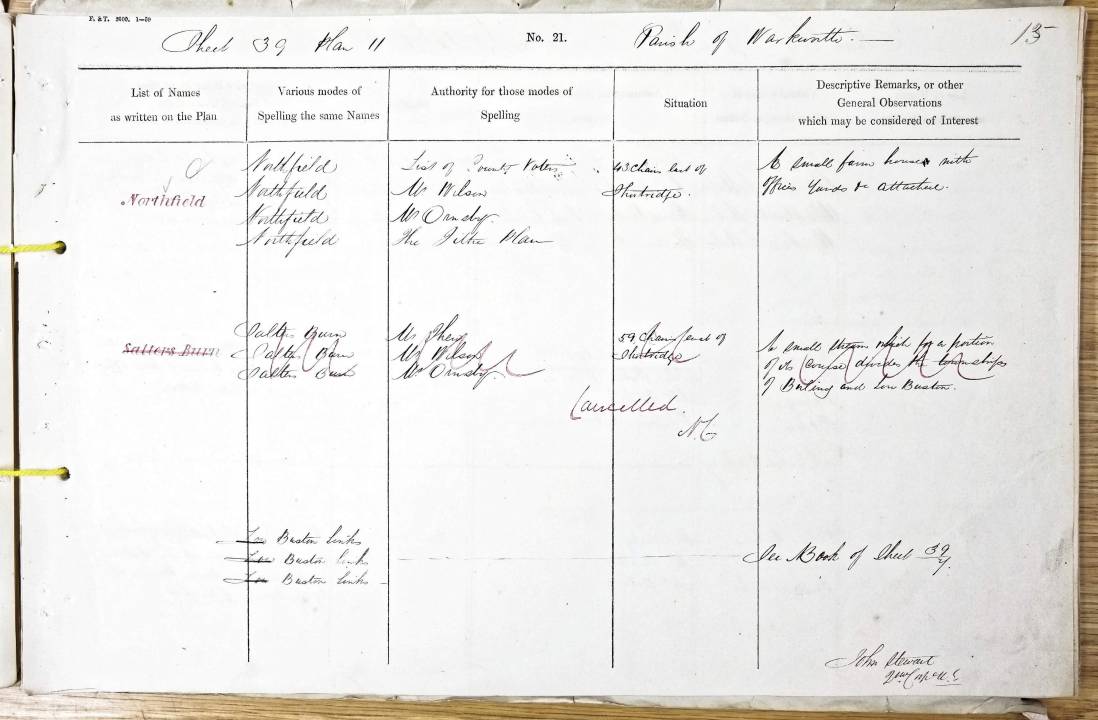 F. & T. 2000. 1—59
Sheet 39 Plan 11 No. 21. Parish of Warkworth. 135
List of Names
as written on the Plan
Various modes of
Spelling the same Names
Authority for those modes of
Spelling
Situation
Descriptive Remarks, or other
General Observations
which may be considered of Interest
Northfield
Northfield
Northfield
Northfield
Northfield
List of County Voters
Mr Wilson
Mr Ormsby.
The Tithe Plan
43 Chains East of
Shortridge.
A small farm house with
offices Yards &c attached.
Salters Burn
Salters Burn
Salters Burn
Salters Burn
Mr
Mr Wilson
Mr Ormsby.
59 Chains East of
Shortridge
A small stream which for a portion
of its course divides the townships
of Birling and Low Buston.
Cancelled.
Low Buston Links
Low Buston Links
Low Buston Links
See Book of Sheet 39/7.
John Stewart
2nd Corpl R.E